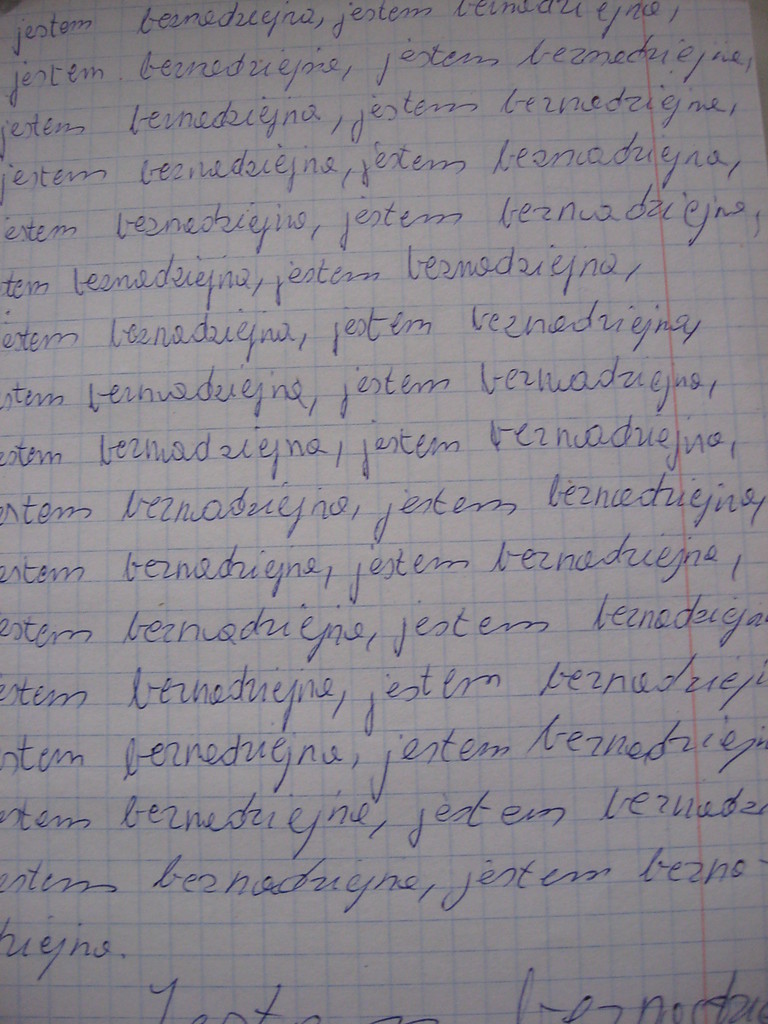 jestem beznadziejna, jestem beznadziejna,
jestem beznadziejna, jestem beznadziejna,
jestem beznadziejna, jestem beznadziejna,
jestem beznadziejna, jestem beznadziejna,
estem beznadziejna, jestem beznadziejna,
tem beznadziejna, jestem beznadziejna,
estem beznadziejna, jestem beznadziejna,
stem beznadziejna, jestem beznadziejna,
estem beznadziejna, jestem beznadziejna,
estem beznadziejna, jestem beznadziejna,
estem beznadziejna, jestem beznadziejna,
estem beznadziejna, jestem beznadziejn
estem beznadziejna, jestem beznadziej
stem beznadziejna, jestem beznadziejn
estem beznadziejna, jestem beznadz
estem beznadziejna, jestem bezna-
dziejna.
Jestem beznadzie